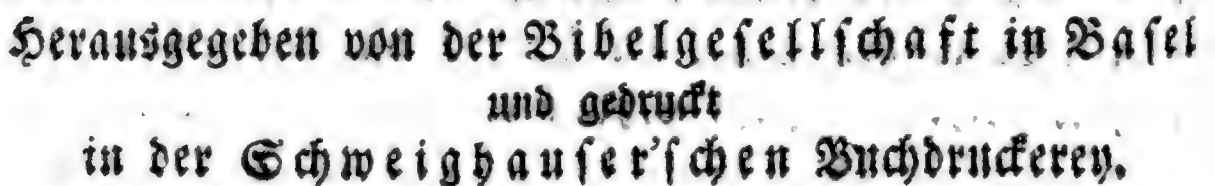 Herausgegeben von der Bibelgesellschaft in Basel
und gedruckt
in der Schweighauser'schen Buchdruckerey.